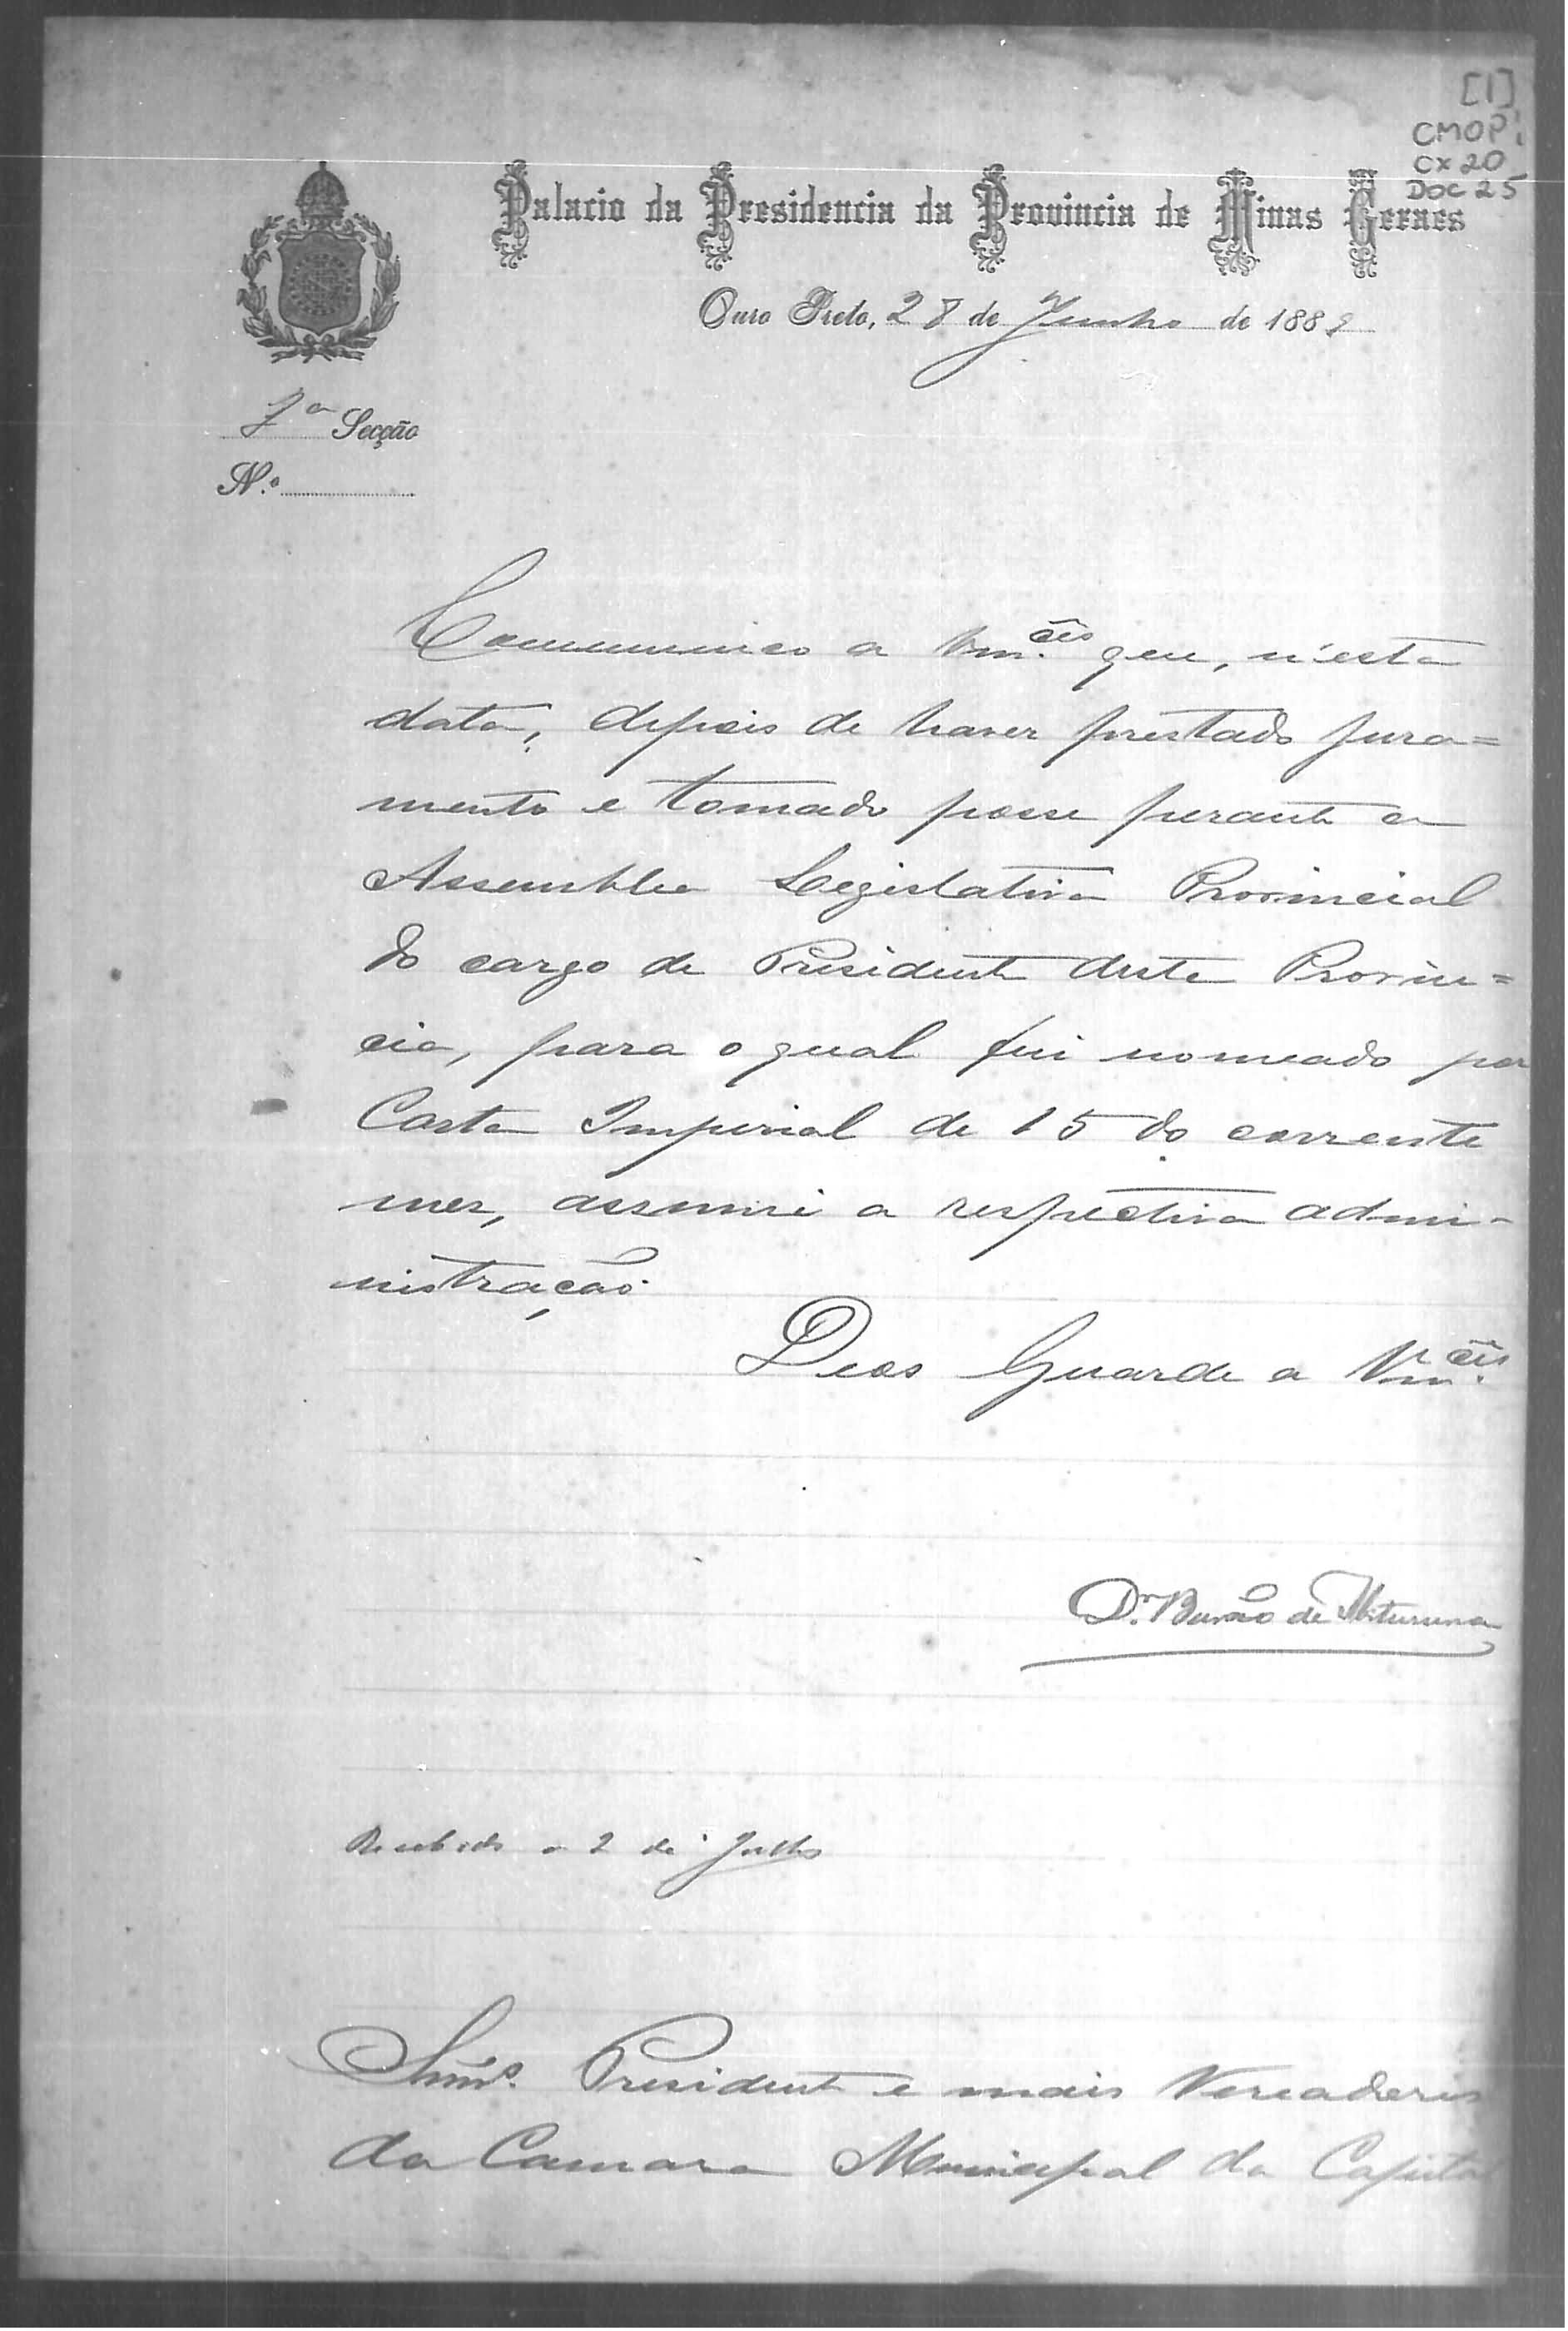 [1]
CMOP
CX 20
DOC 25
Palacio da Presidencia da Provincia de Minas Geraes
Ouro Preto, 28 de Junho de 1889
7ª Secção
N.º
Communico a Vm.cês que, n'esta
data, depois de haver prestado jura=
mento e tomado posse perante a
Assemblea Legislativa Provincial
do cargo de Presidente desta Provin=
cia, para o qual fui nomeado por
Carta Imperial de 15 do corrente
mez, assumi a respectiva admi-
nistração.
Deos Guarde a Vm.cês
Dr. Barão de Ibituruna
Recebido a 2 de Julho
Snrs. Presidente e mais Vereadores
da Camara Municipal da Capital